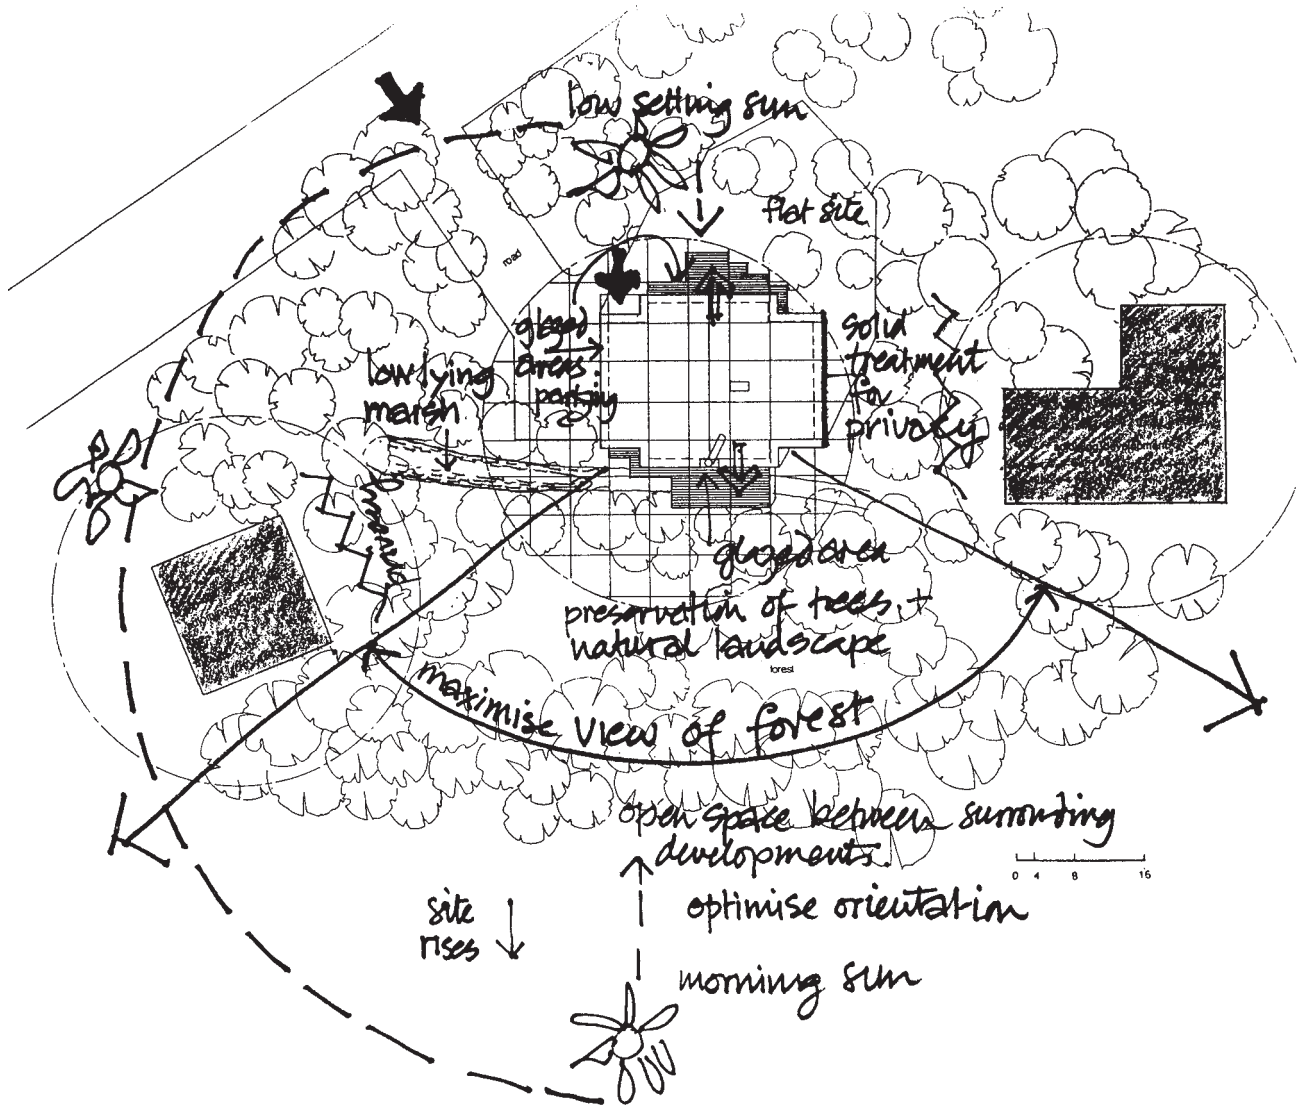 low setting sun
flat site
road
glazed
areas
parking
low lying
marsh
solid
treatment
for
privacy
glazed area
preservation of trees +
natural landscape
forest
maximise view of forest
open space between surrounding
developments.
0 4 8 16
optimise orientation
site
rises
morning sun